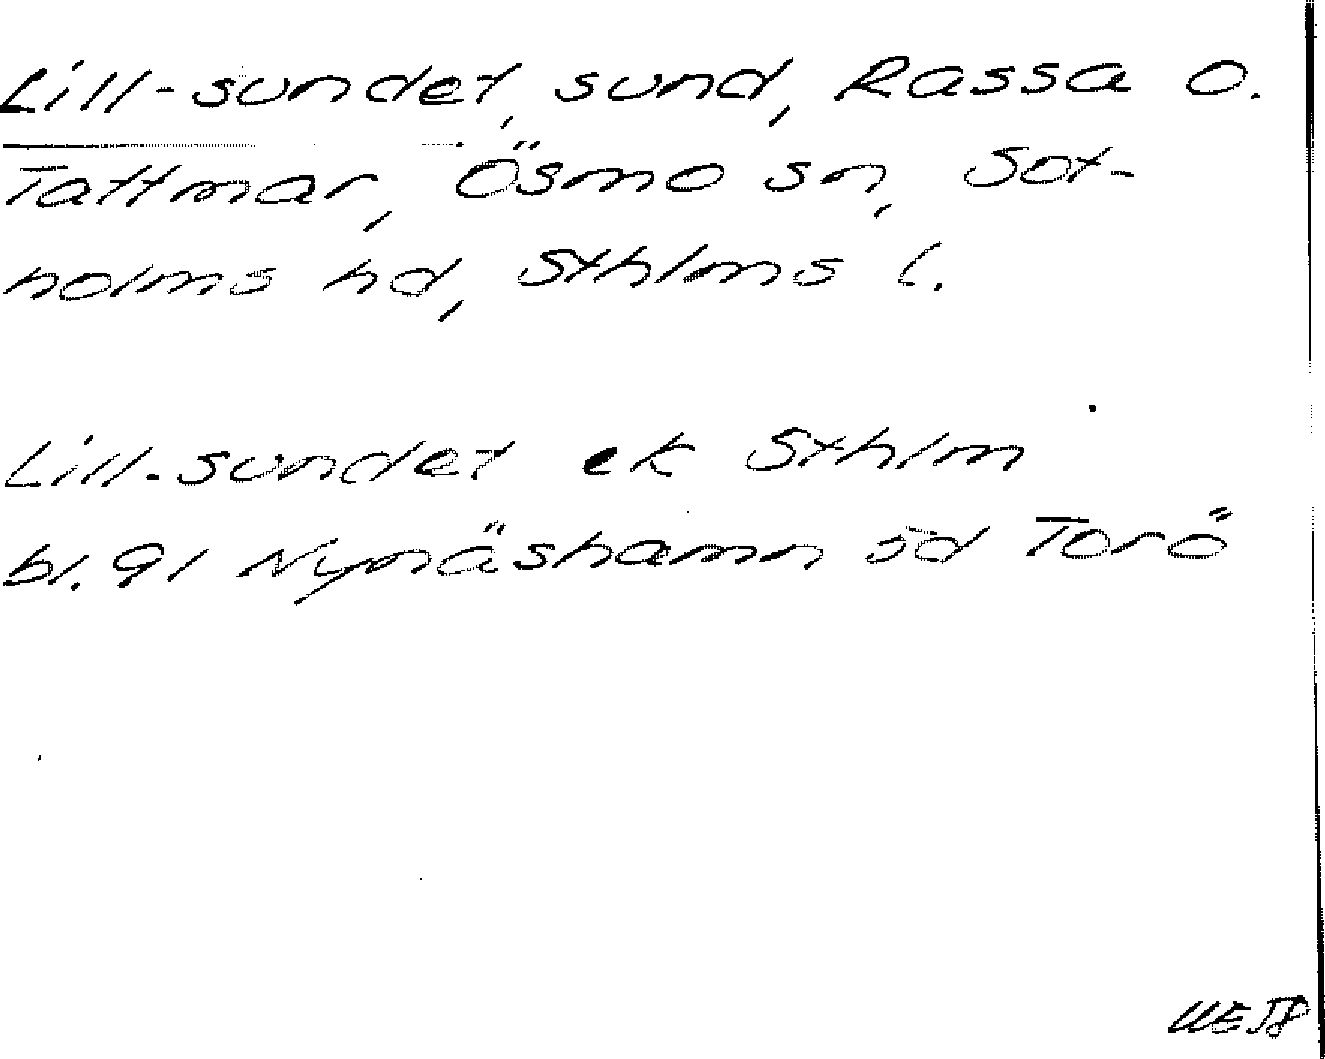 Lill-sundet, sund, Rassa o.
Tattmar, Ösmo sn, Sot-
holms hd, Sthlms l.
Lill-sundet ek Sthlm
bl. 91 Nynäshamn sd Torö
UE 58